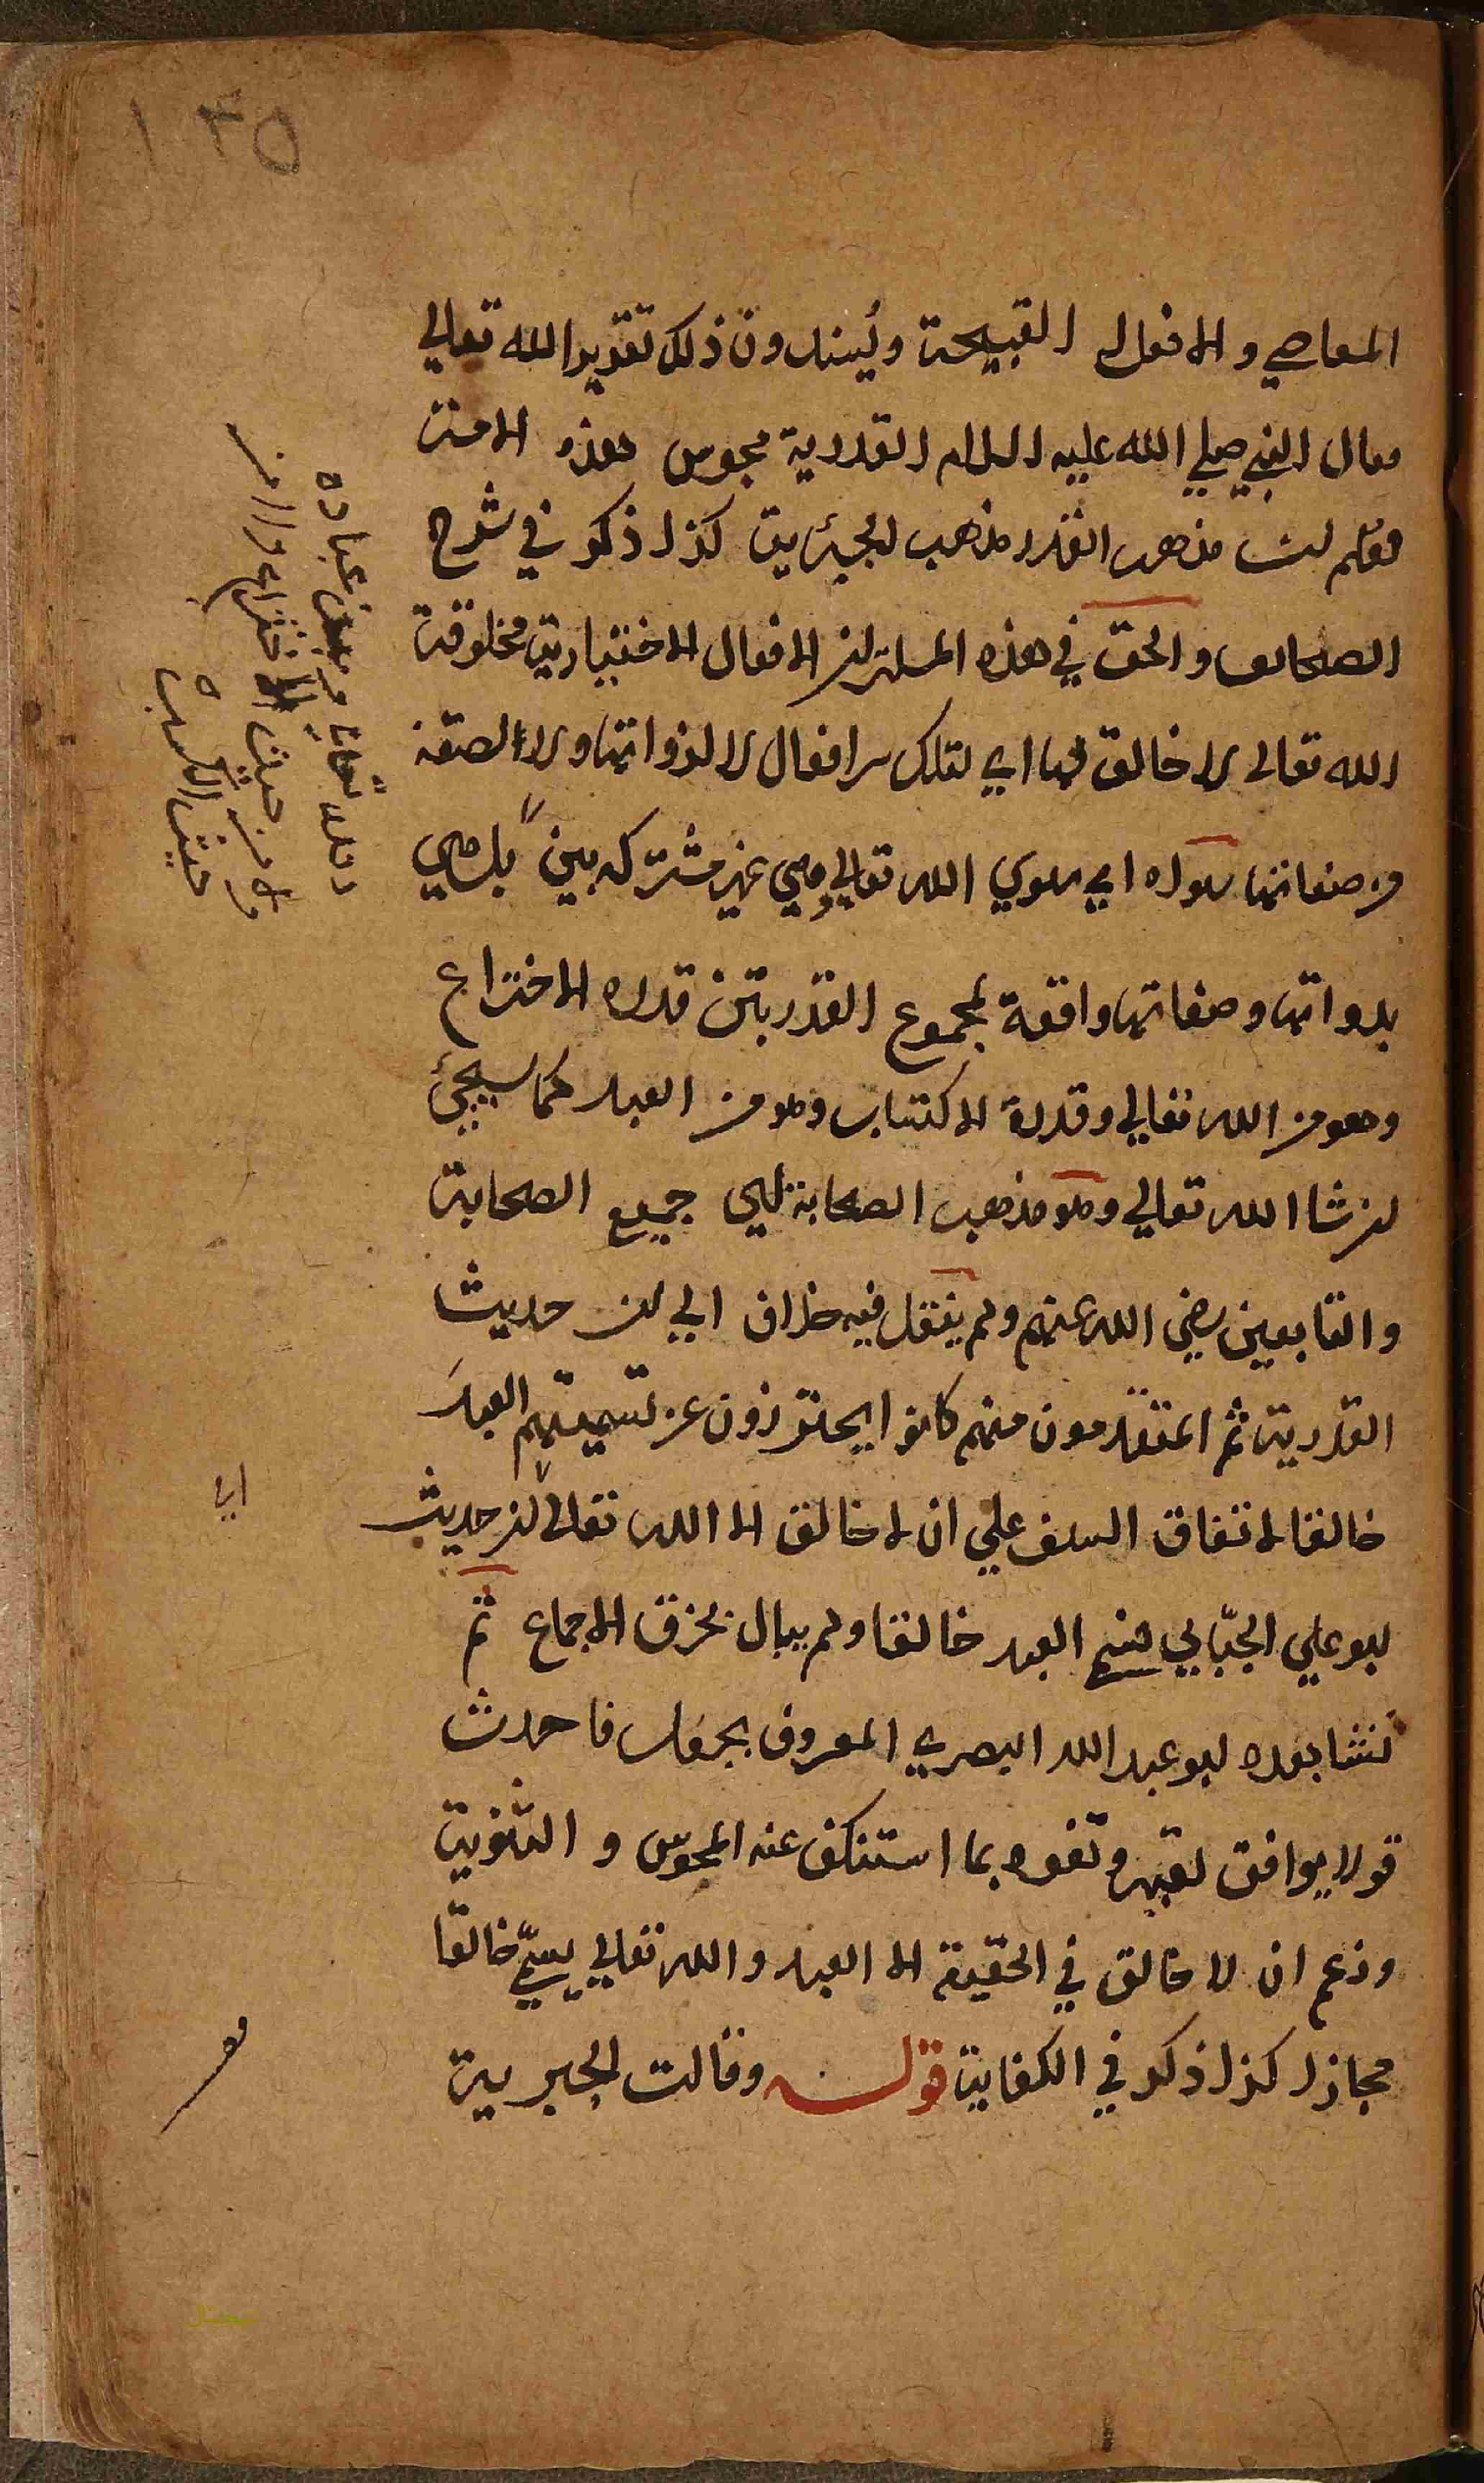 ١٣٥
المعاصي والافعال القبيحة ويسندون ذلك تقدير الله تعالي
فقال النبي صلي الله عليه السلام القدرية مجوس هذه الامة
فعلم ان مذهب القدر مذهب الجبرية كذا ذكر في شرح
الصحائف والحق في هذه المسئلة ان الافعال الاختيارية مخلوقة
الله تعالى لا خالق لها اي لتلك الافعال لا لذواتها ولا لصفة
من صفاتها سواه اي سوي الله تعالي وهي غير مشتركة بين بل هي
بذواتها وصفاتها واقعة بمجموع القدرتين قدرة الاختراع
وهو من الله تعالي وقدرة الاكتساب وهو من العبد كما سيجئ
ان شا الله تعالي وهو مذهب الصحابة اي جميع الصحابة
والتابعين رضي الله عنهم ولم ينقل فيه خلاف الي ان حديث
القدرية ثم المتقدمون منهم كانوا يحترزون عن تسميتهم العبد
خالقا لاتفاق السلف علي ان لا خالق الا الله تعالي ان حديث
ابو علي الجبّايي فسم العبد خالقا ولم يبال بخرق الاجماع ثم
نشا بعده ابو عبد الله البصري المعروف بجعل فاحدث
قولا يوافق لقبه وتفوه بما استنكف عنه المجوس و الثنوية
وزعم ان لا خالق في الحقيقة الا العبد والله تعالي يسمّي خالقا
مجازا كذا ذكر في الكفاية قوله وقالت الجبرية
الله تعالى وبين عباده
من حيث الاختراع ولا من
حيث الكسب
اي